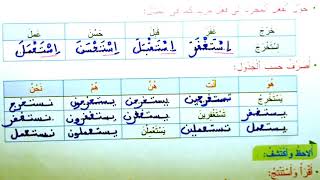 خَرَجَ غَفَرَ قَبِلَ حَسُنَ عَمِلَ
اِسْتَخْرَجَ اِسْتَغْفَرَ اِسْتَقْبَلَ اِسْتَحْسَنَ اِسْتَعْمَلَ
أُصَرِّفُ حَسَبَ الْجَدْوَلِ:
هُوَ أَنْتِ هُنَّ هُمْ نَحْنُ
يَسْتَخْرِجُ تستخرجين يستخرجن يستخرجون نستخرج
يستغفر تَسْتَغْفِرِينَ يستغفرن يستغفرون نستغفر
يستعمل تستعملين يَسْتَعْمِلْنَ يستعملون نستعمل
أُلَاحِظُ وَأَكْتَشِفُ:
أَقْرَأُ وَأَسْتَنْتِجُ: